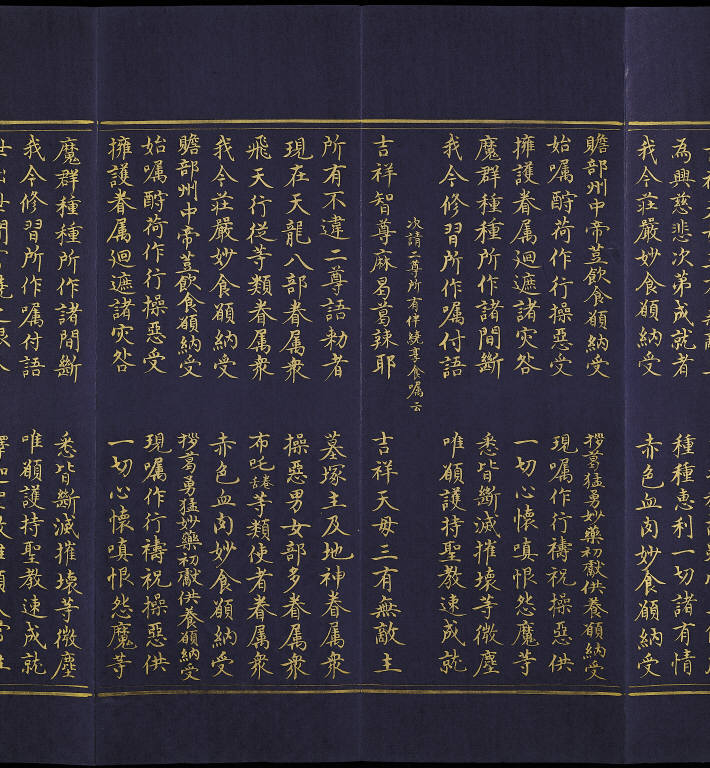 為興慈悲次第成就者 種種惠利一切諸有情
我今莊嚴妙食願納受 赤色血肉妙食願納受
贍部州中帝荳飲食願納受 拶葛猛勇妙藥初獻供養願納受
始嘱酧荷作行操惡受 現嘱作行禱祝操惡供
擁護眷属廻遮諸灾咎 一切心懷嗔恨怨魔等
魔群種種所作諸間斷 悉皆斷滅摧壞等微塵
我今修習所作嘱付語 唯願護持聖教速成就
次請二尊所有伴繞享食嘱云
吉祥智尊麻曷葛辣耶 吉祥天母三有無敵主
所有不違二尊語勅者 墓塚主及地神眷属衆
現在天龍八部眷属衆 操惡男女部多眷属衆
飛天行從等類眷属衆 布吒等類使者眷属衆
我今莊嚴妙食願納受 赤色血肉妙食願納受
贍部州中帝荳飲食願納受 拶葛勇猛妙藥初獻供養願納受
始嘱酧荷作行操惡受 現嘱作行禱祝操惡供
擁護眷属廻遮諸灾咎 一切心懷嗔恨怨魔等
魔群種種所作諸間斷 悉皆斷滅摧壞等微塵
我今修習所作嘱付語 唯願護持聖教速成就